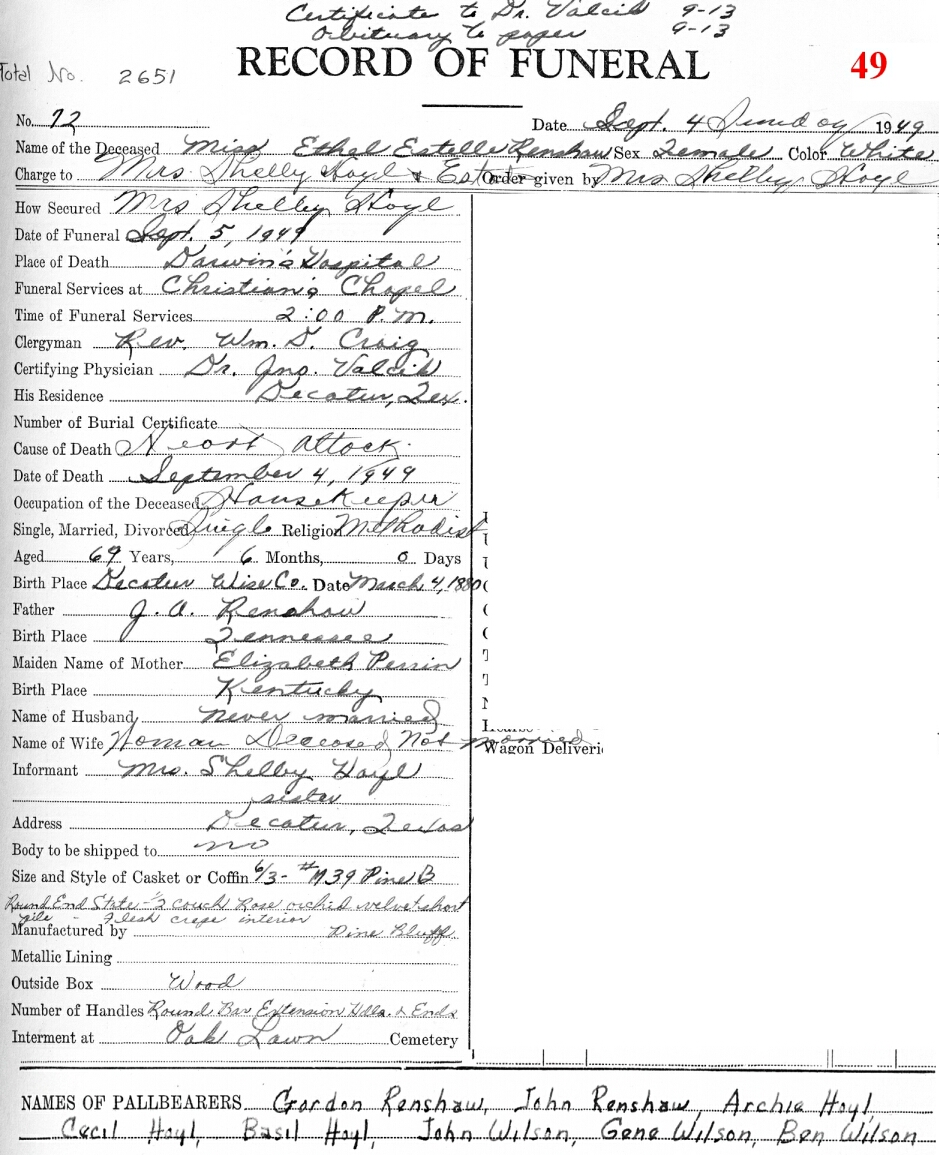 Certificate to Dr. Valcik 9-13
Obituary to paper 9-13
Total No. 2651
RECORD OF FUNERAL
49
No. 72 Date Sept. 4 Sunday 1949
Name of the Deceased Miss Ethel Estelle Renshaw Sex Female Color White
Charge to Mrs Shelby Hoyl & Est Order given by Mrs Shelby Hoyl
How Secured Mrs Shelby Hoyl
Date of Funeral Sept. 5, 1949
Place of Death Darwin's Hospital
Funeral Services at Christian's Chapel
Time of Funeral Services 2:00 P.M.
Clergyman Rev. Wm. D. Craig
Certifying Physician Dr. Jno. Valcik
His Residence Decatur, Tex.
Number of Burial Certificate
Cause of Death Heart Attack
Date of Death September 4, 1949
Occupation of the Deceased Housekeeper
Single, Married, Divorced Single Religion Methodist
Aged 69 Years, 6 Months, 0 Days
Birth Place Decatur Wise Co. Date March 4, 1880
Father J. A. Renshaw
Birth Place Tennessee
Maiden Name of Mother Elizabeth Perrin
Birth Place Kentucky
Name of Husband never married
Name of Wife Woman Deceased, Not married
Wagon Deliveri
Informant Mrs. Shelby Hoyl
sister
Address Decatur, Texas
Body to be shipped to no
Size and Style of Casket or Coffin 6/3- # M39 Pine B
Round End State - 1/2 couch Rose orchid velvet short
pile - Flesh crepe interior
Manufactured by Pine Bluff
Metallic Lining
Outside Box Wood
Number of Handles Round Bar Extension Hdls. & Ends
Interment at Oak Lawn Cemetery
NAMES OF PALLBEARERS Gordon Renshaw, John Renshaw, Archie Hoyl,
Cecil Hoyl, Basil Hoyl, John Wilson, Gene Wilson, Ben Wilson